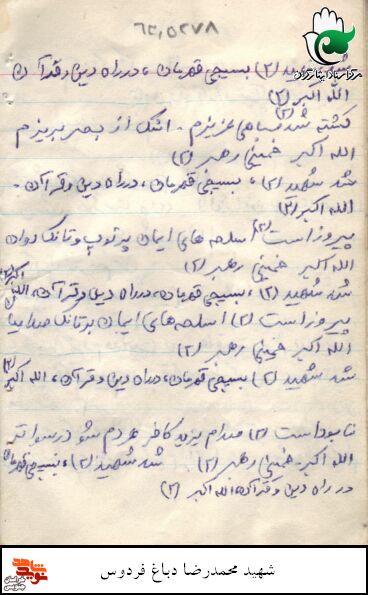 ۶۲,۵۲۷۸
شد شهید (۲) بسیجی قهرمان، در راه دین و قرآن
الله اکبر (۲)
کشته شد سپاهی عزیزم. اشک از بصر بریزم
(۲)
الله اکبر خمینی رهبر (۲)
شد شهید (۲)، بسیجی قهرمان، در راه دین و قرآن.
الله اکبر (۲)
پیروز است (۲) اسلحه های ایمان بر توپ و تانک
الله اکبر خمینی رهبر (۲)
شد شهید (۲)، بسیجی قهرمان، در راه دین و قرآن، الله اکبر (۲)
پیروز است (۲) اسلحه های ایمان بر تانک
الله اکبر خمینی رهبر (۲)
شد شهید (۲) بسیجی قهرمان، در راه دین و قرآن، الله اکبر (۲)
نابود است (۲) صدام یزید کافر هر دم شود رسواتر
الله اکبر خمینی رهبر (۲) شد شهید (۲)، بسیجی قهرمان
در راه دین و قرآن، الله اکبر (۲)
شهید محمدرضا دباغ فردوس